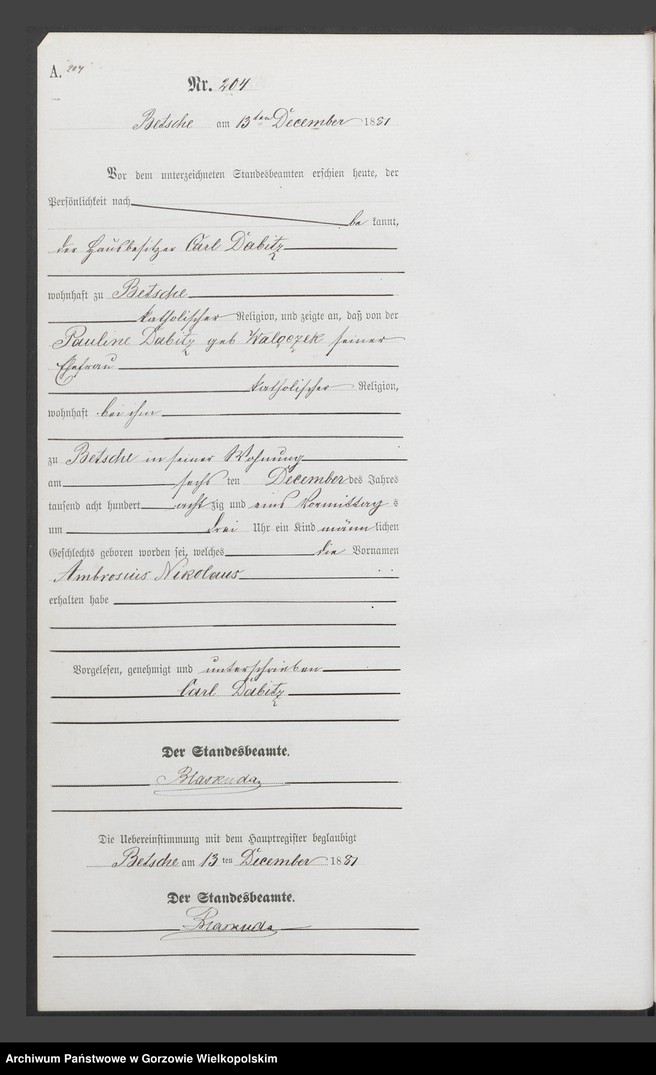 A. 204
Nr. 204
Betsche am 13ten December 1881
Vor dem unterzeichneten Standesbeamten erschien heute, der
Persönlichkeit nach
be kannt,
der Hausbesitzer Carl Dabitz
wohnhaft zu Betsche
katholischer Religion, und zeigte an, daß von der
Pauline Dabitz geb Walqczek seiner
Ehefrau
katholischer Religion,
wohnhaft bei ihm
zu Betsche in seiner Wohnung
am sechs ten December des Jahres
tausend acht hundert acht zig und eins Vormittag s
um drei Uhr ein Kind männ lichen
Geschlechts geboren worden sei, welches die Vornamen
Ambrosius Nikolaus
erhalten habe
Vorgelesen, genehmigt und unterschrieben
Carl Dabitz
Der Standesbeamte.
Die Uebereinstimmung mit dem Hauptregister beglaubigt
Betsche am 13 ten December 1881
Der Standesbeamte.
Archiwum Państwowe w Gorzowie Wielkopolskim